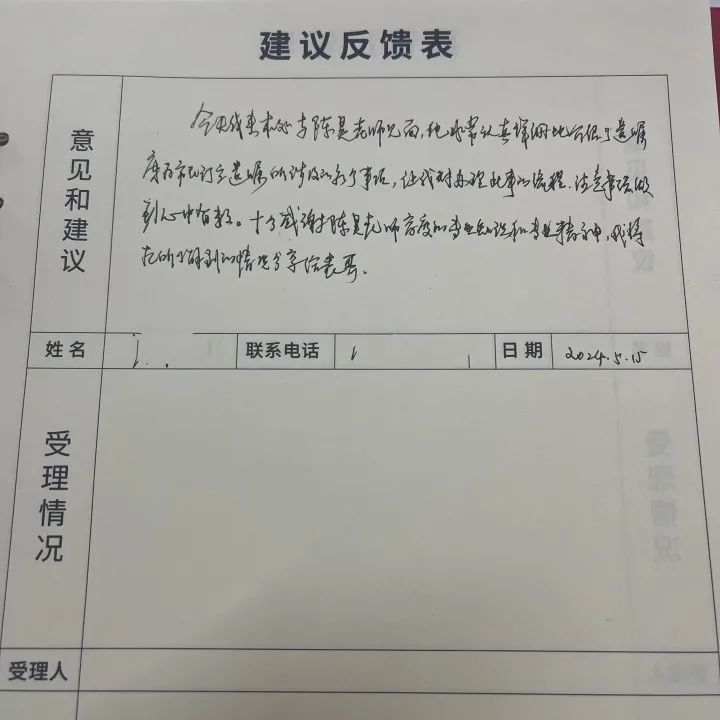 建议反馈表
意见和建议
今天我来本处与陈昊老师见面,他非常认真详细地介绍了遗嘱
库和订立遗嘱所涉及的多个事项,让我对办理此事的流程、注意事项做
到心中有数。十分感谢陈昊老师高度的专业知识和专业精神,我将
把所了解到的情况分享给表哥。
姓名
联系电话
日期 2024.5.15
受理情况
受理人